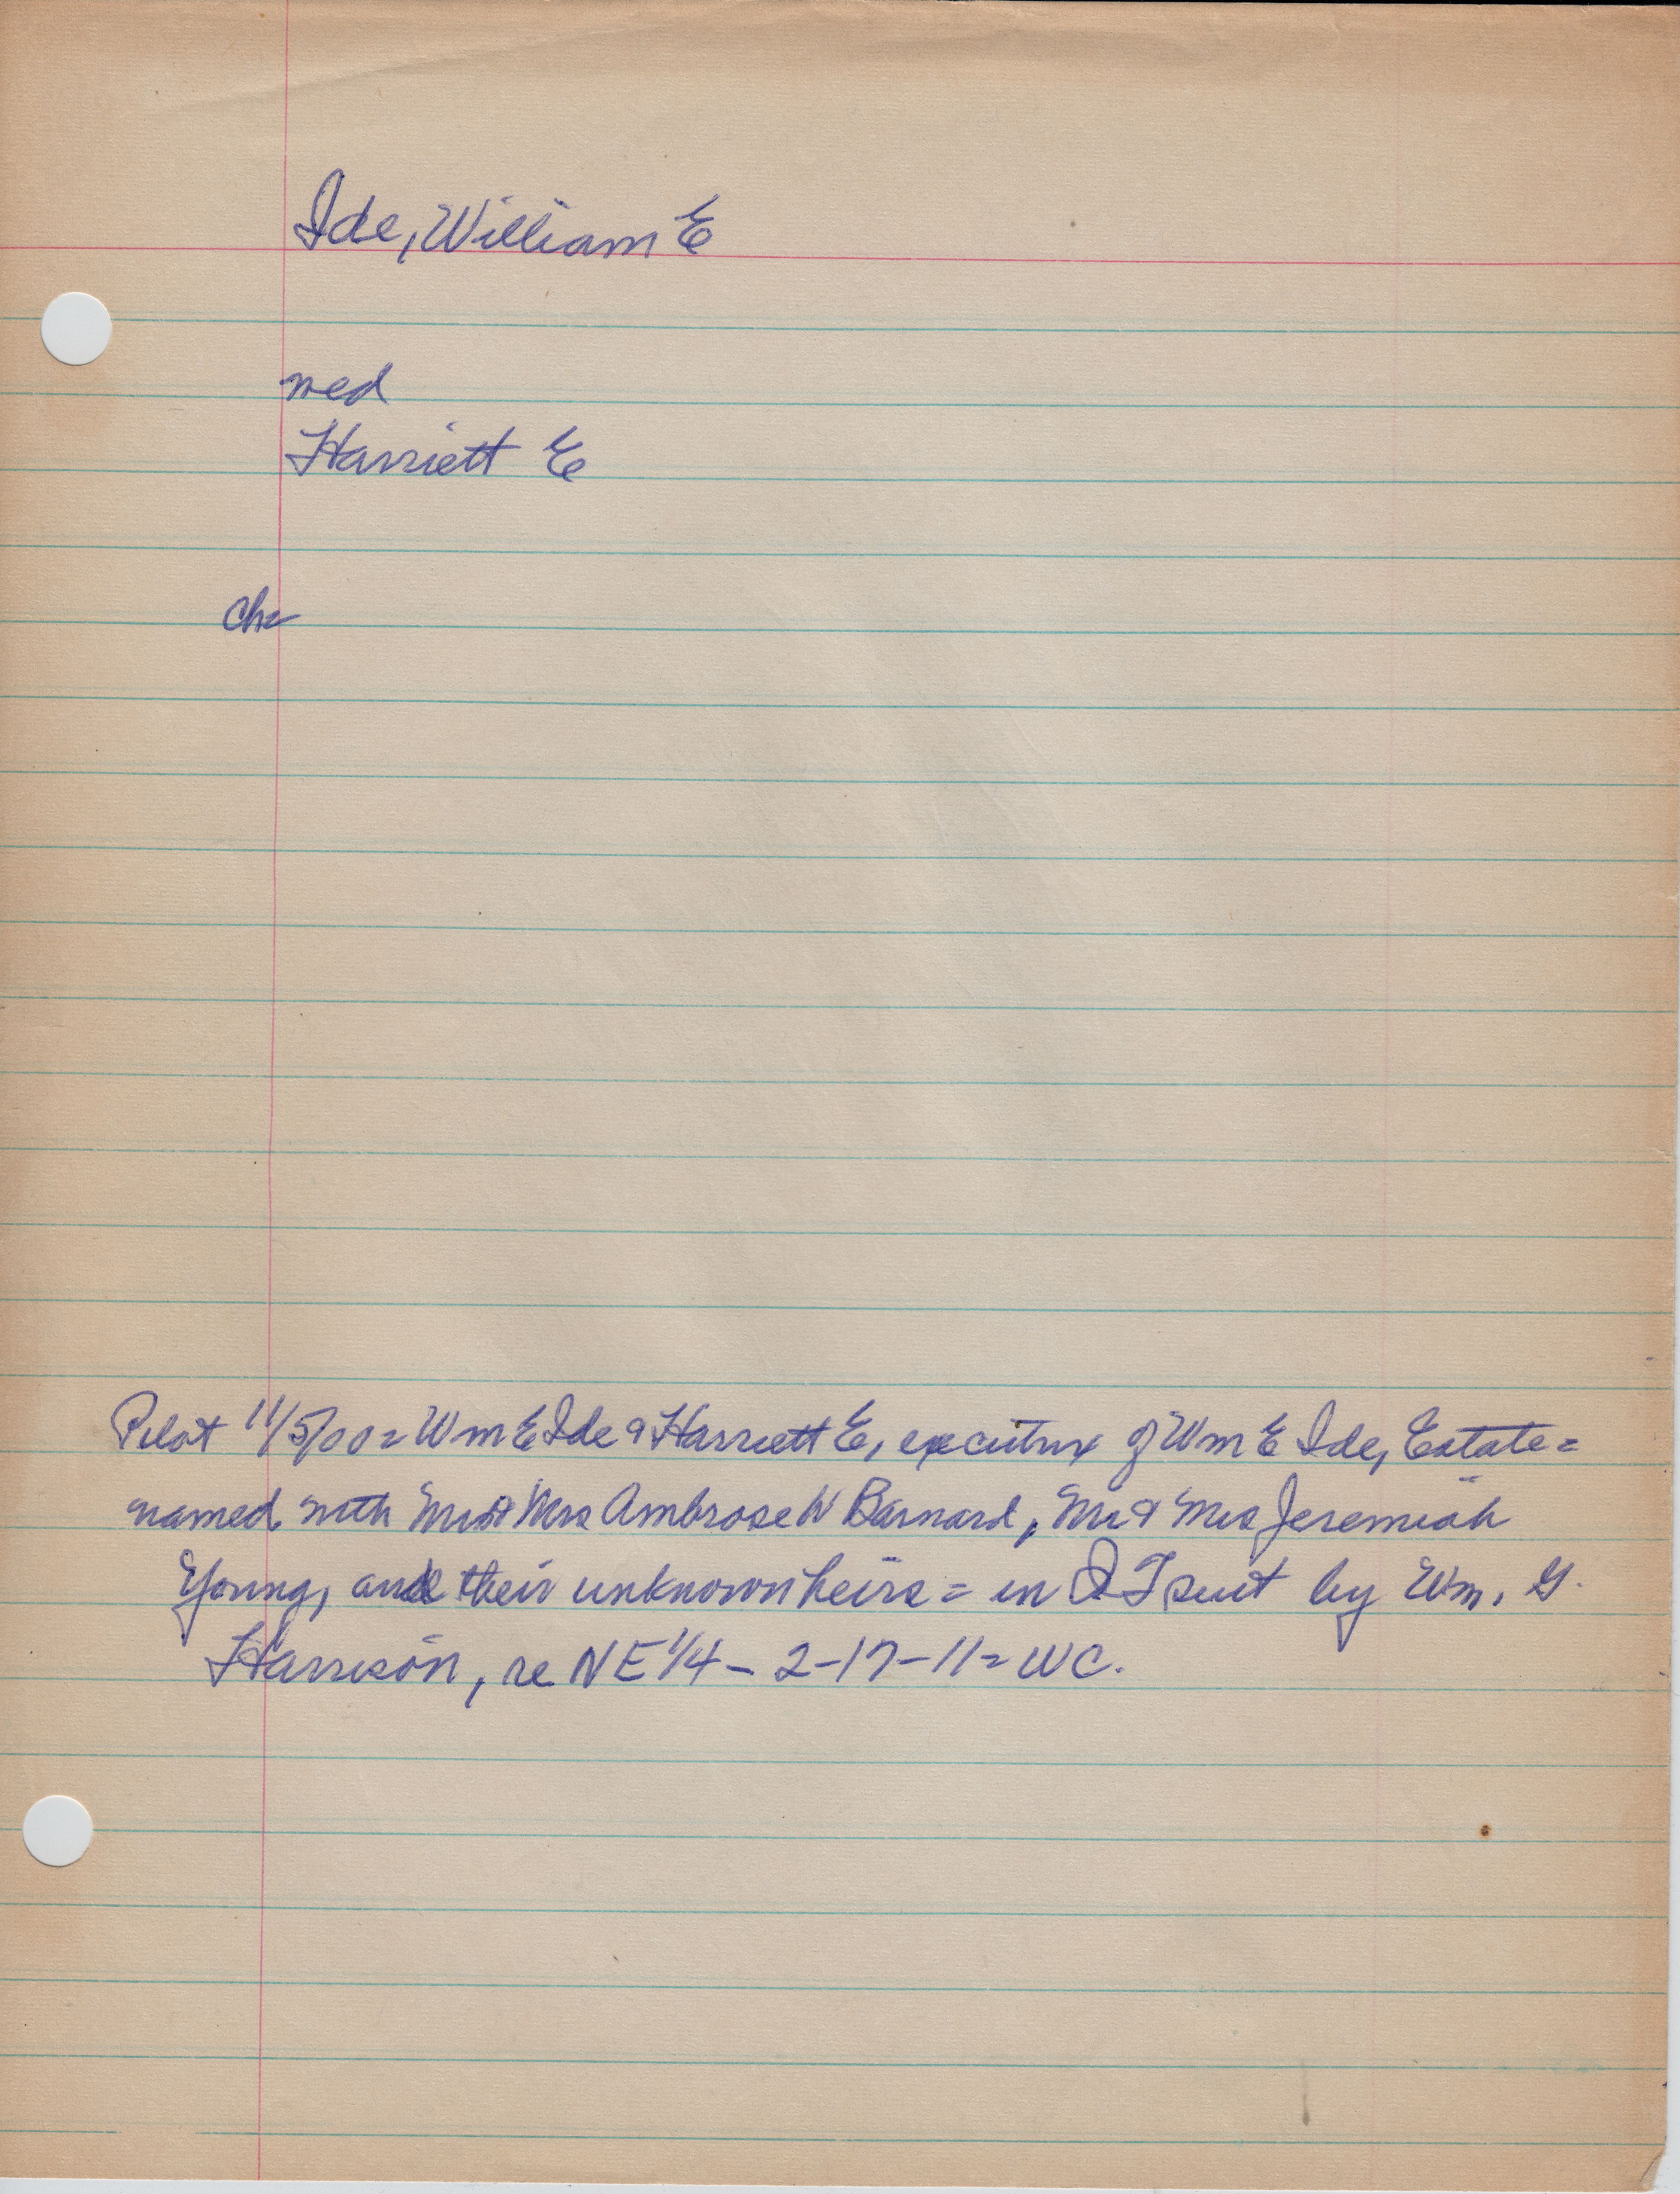 Ide, William E
med
Harriett E
ch=
Pilot 11/5/00= Wm E Ide & Harriett E, executrix of Wm E Ide, Estate=
named with Mr & Mrs Ambrose W Barnard, Mr & Mrs Jeremiah
Young, and their unknown heirs = in QT suit by Wm. G.
Harrison, re NE 1/4 - 2-17-11= WC.